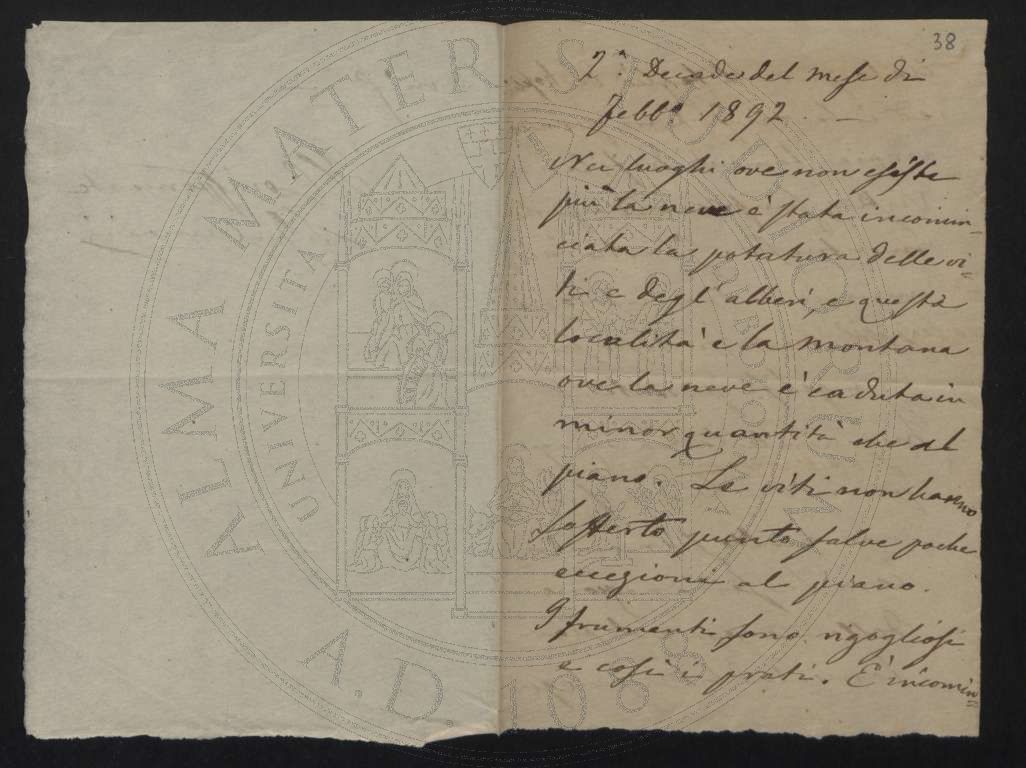 38
2.ª Decade del mese di
Febb.º 1892. —
Nei luoghi ove non esiste
più la neve è stata incomin=
ciata la potatura delle vi=
ti e degl'alberi, e questa
località è la montana
ove la neve è caduta in
minor quantità che al
piano. Le viti non hanno
sofferto punto salve poche
eccezioni al piano.
I frumenti sono rigogliosi
e così i prati. È incomin=
ALMA MATER STUDIORUM
UNIVERSITÀ
A.D. 1088